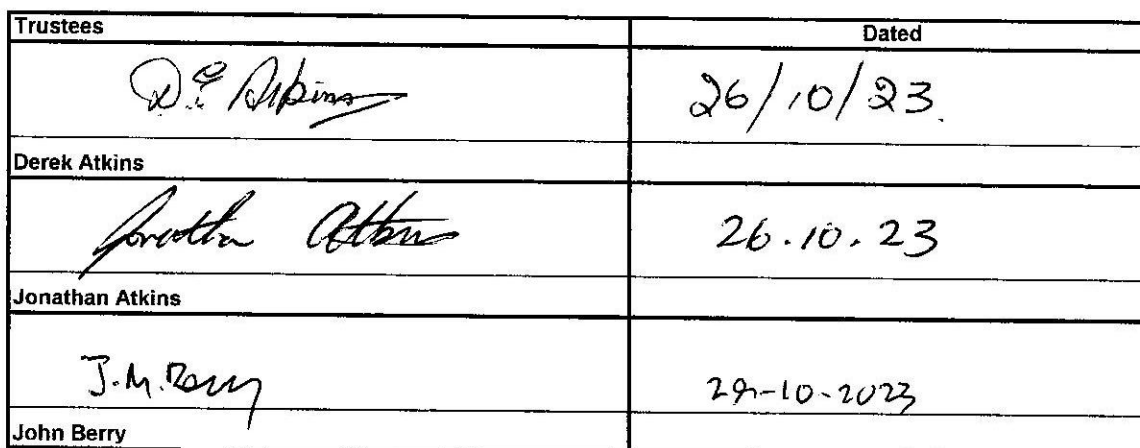 Trustees Dated
D.E Atkins 26/10/23.
Derek Atkins
Jonathan Atkins 26.10.23
Jonathan Atkins
J.M.Berry
John Berry